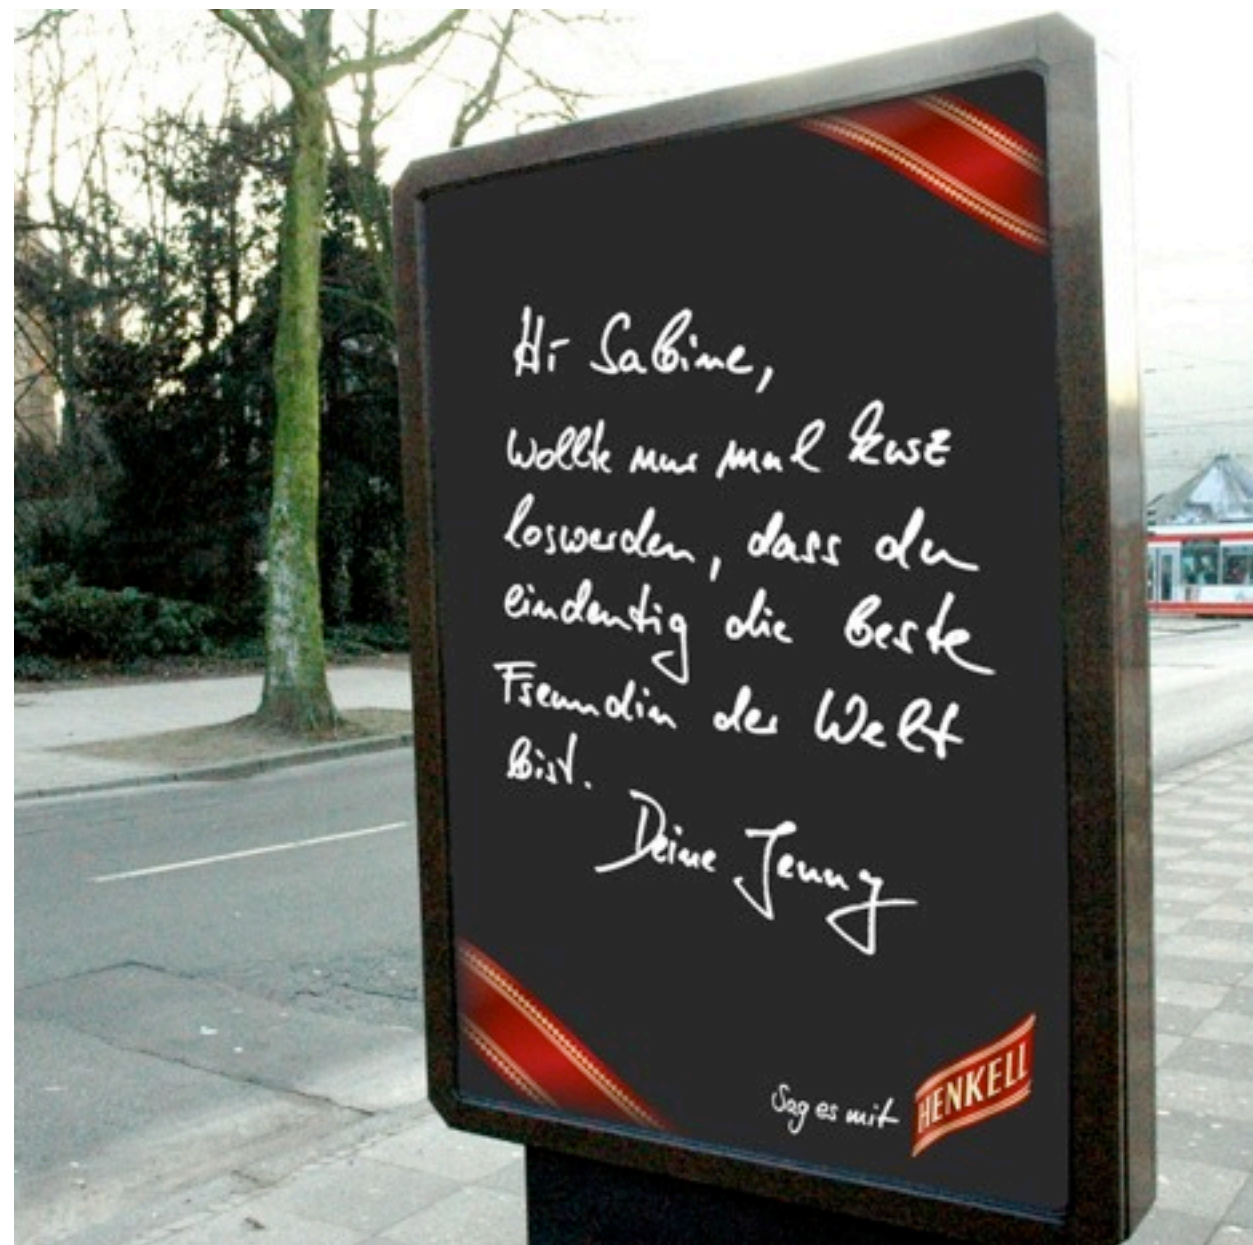 Hi Sabine,
wollte nur mal kurz
loswerden, dass du
eindeutig die beste
Freundin der Welt
bist.
Deine Jenny
Sag es mit HENKELL